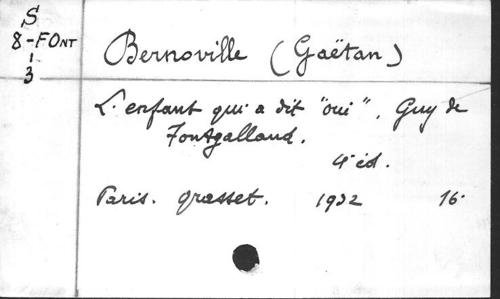 S
8-FONT
1
3
Bernoville (Gaëtan)
L'enfant qui a dit "oui", Guy de
Fontgalland.
4e éd.
Paris. Grasset. 1932 16°